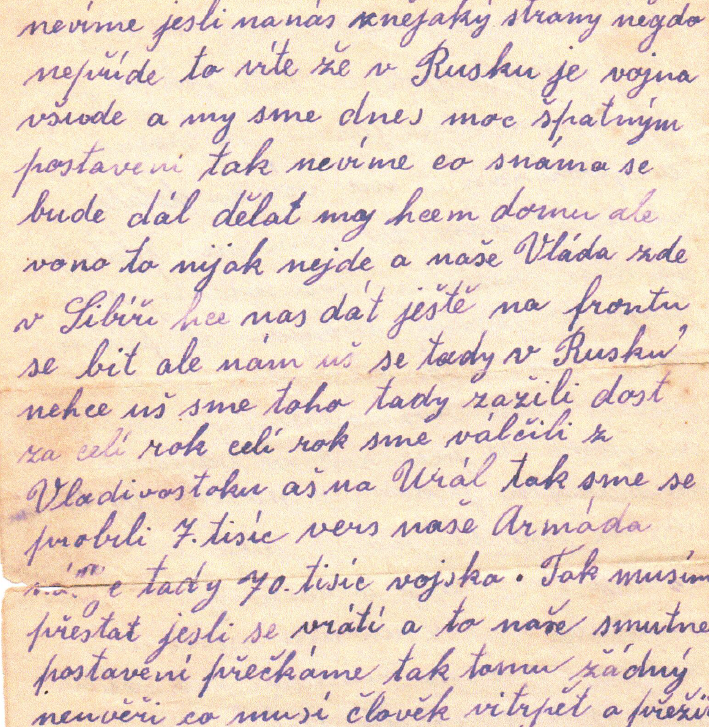 nevíme jesli nanás znějaký strany něgdo
nepříde to víte že v Rusku je vojna
všude a my sme dnes moc špatným
postavení tak nevíme co snáma se
bude dál dělat my hcem domu ale
vono to nijak nejde a naše Vláda zde
v Sibíři hce nas dát ještě na frontu
se bit ale nám uš se tady v Rusku
nehce uš sme toho tady zažili dost
za celí rok celí rok sme válčili z
Vladivostoku aš na Urál tak sme se
probili 7. tisíc vers naše Armáda
tady 70. tisíc vojska. Tak musím
přestat jesli se vrátí a to naše smutne
postavení přečkáme tak tomu žádný
neuvěři co musí člověk vitrpět a přežít